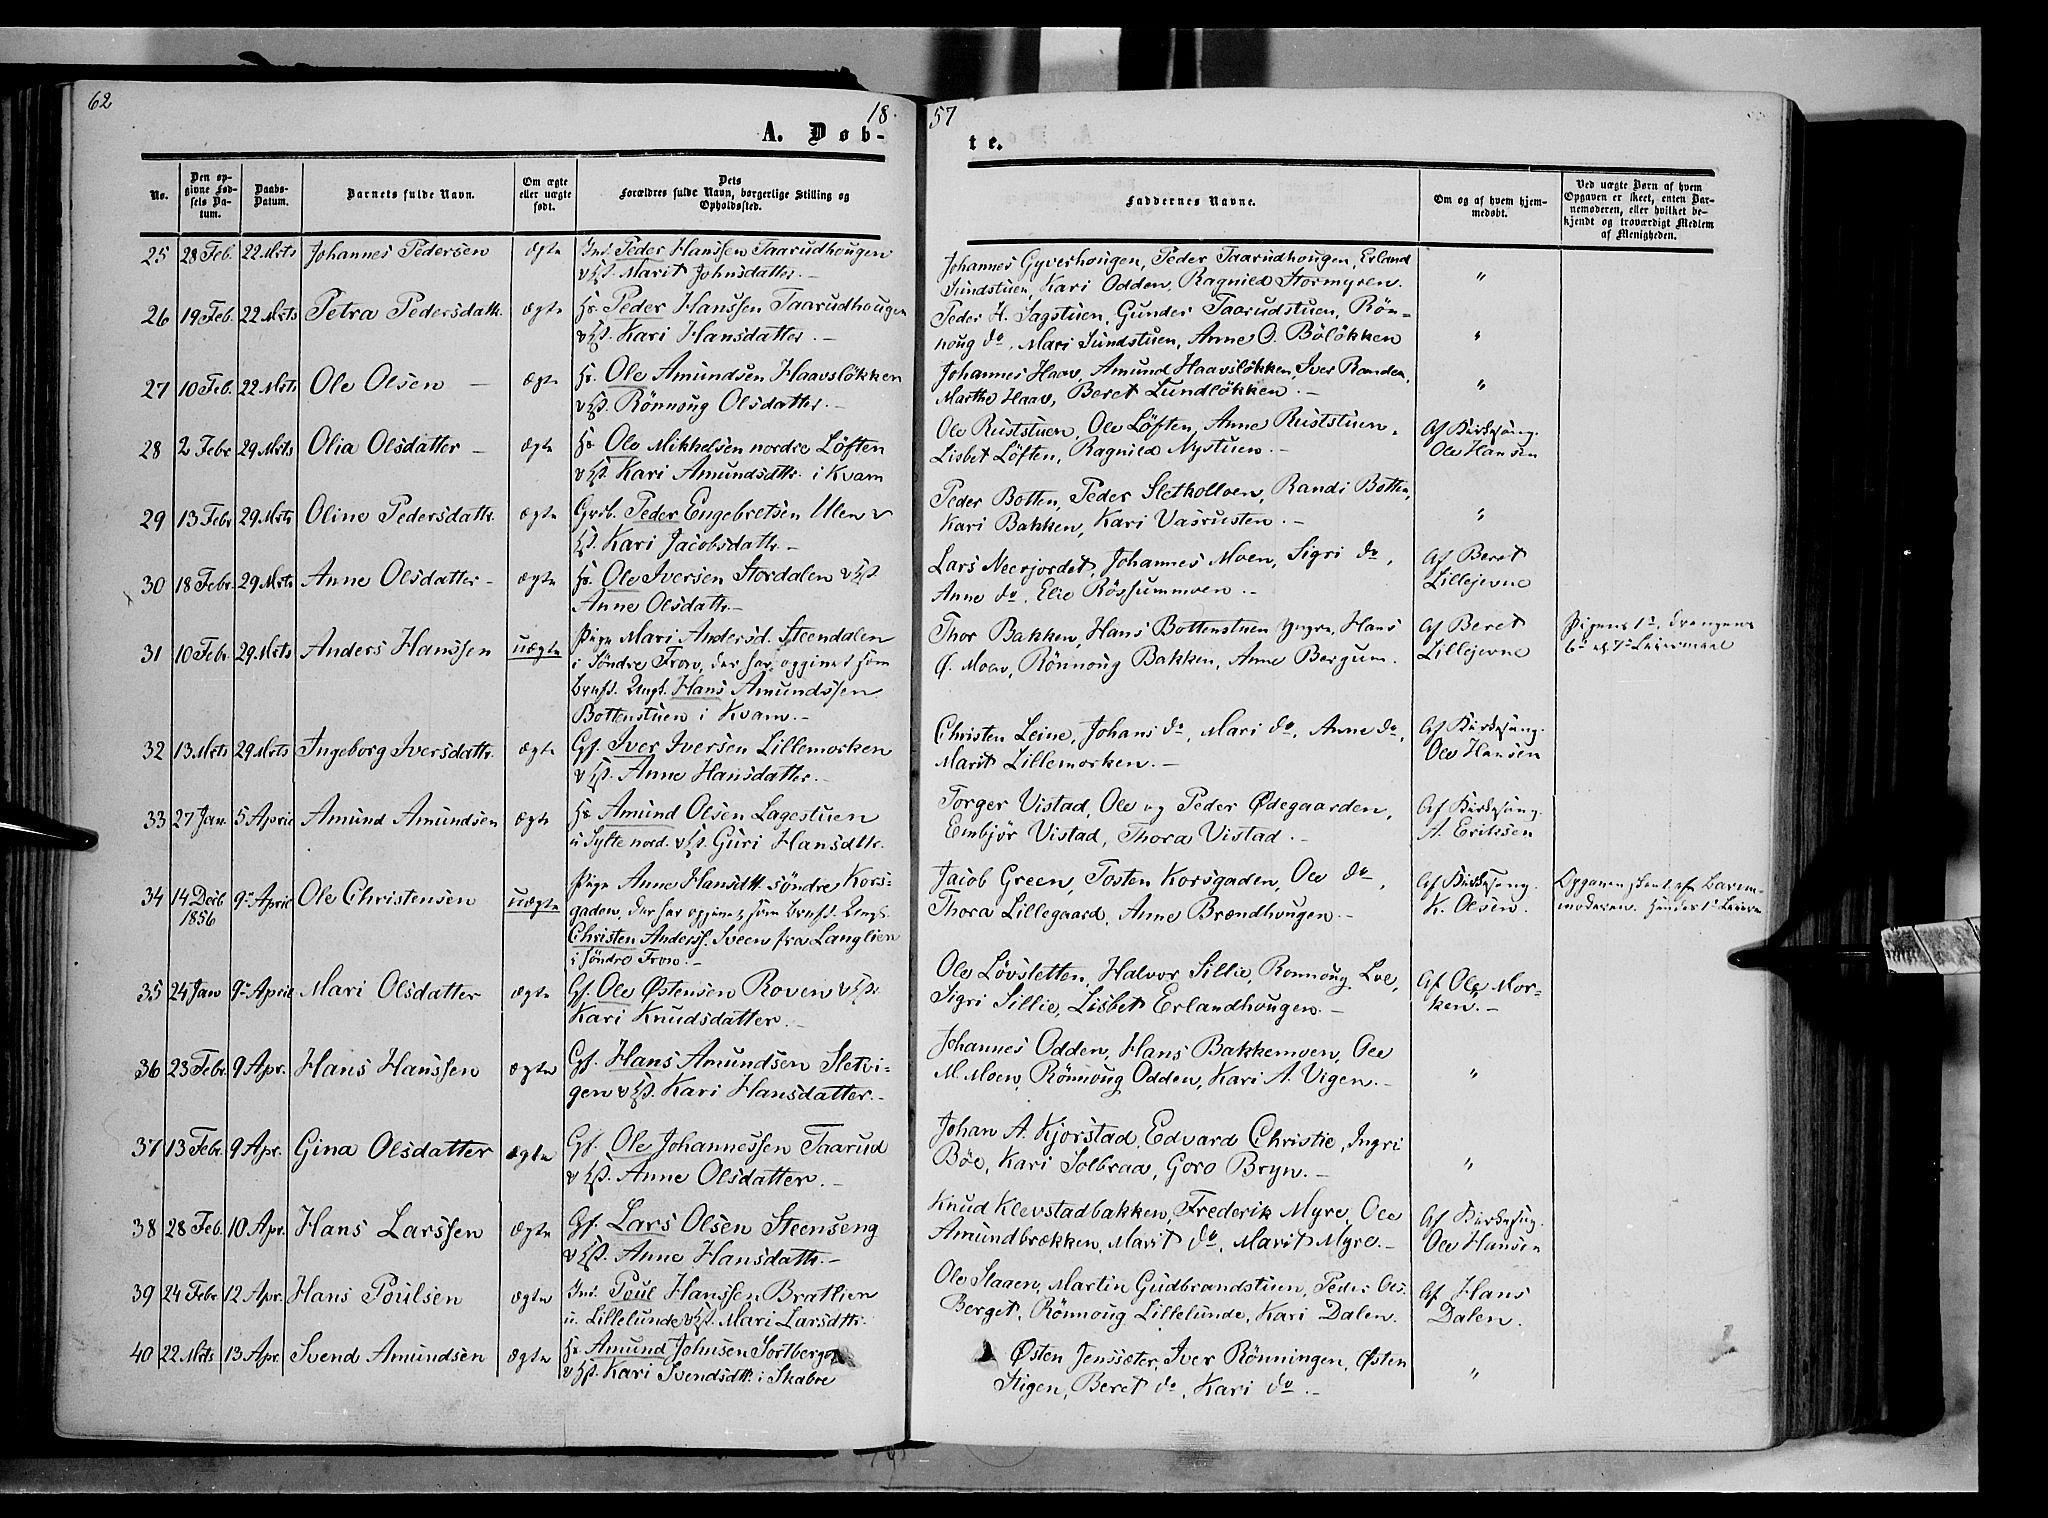 62
18
57
A. Døb-
te.
No.
Den op-
givne Fød-
sels Da-
tum.
Daabs-
Datum.
Barnets fulde Navn.
Om ægte
eller uægte
født.
Dets
Forældres fulde Navn, borgerlige Stilling og
Opholdssted.
Faddernes Navne.
Om og af hvem hjem-
medøbt.
Ved uægte Børn af hvem
Opgaven er skeet, enten Bar-
nemoderen, eller hvilket be-
kjendt og troværdigt Medlem
af Menigheden.
25 28 Feb. 22 Mrts Johannes Pedersen ægte Ind. Peder Hanssen Taarudhougen
v Hst. Marit Johnsdatter. —
Johannes Gyverhougen, Peder Taarudhougen, Erland
Sundstuen, Kari Odden, Ragnild Stormyren. "
26 19 Feb. 22 Mrts Petra Pedersdattr. ægte Hr. Peder Hanssen Taarudhougen
v Hst. Kari Hansdatter. —
Peder H. Sagstuen, Gunder Taarudstuen, Rön-
noug do, Mari Sundstuen, Anne O. Bölökken "
27 10 Feb. 22 Mrts Ole Olsen — ægte Hr. Ole Amundsen Haavslökken
v Hst. Rönnoug Olsdatter. —
Johannes Haav, Amund Haavslökken, Iver Randen,
Marthe Haav, Beret Lundlökken. — "
28 2 Febr 29 Mrts Olia Olsdatter — ægte Hr Ole Mikkelsen nordre Löften
v Hst. Kari Amundsdttr. i Kvam
Ole Ruststuen, Ole Löften, Anne Ruststuen,
Lisbet Löften, Ragnild Nystuen. —
Af Kirkesang.
Ole Hansen
29 13 Febr 29 Mrts Oline Pedersdattr. ægte Grdb. Peder Engebretsen Ulen v
Hst. Kari Jacobsdattr. —
Peder Botten, Peder Sletkolloen, Randi Botten,
Kari Bakken, Kari Vasrusten. — "
30 18 Febr. 29 Mrts Anne Olsdatter — ægte Hr. Ole Iversen Stordalen v Hst.
Anne Olsdattr. —
Lars Neerjordet, Johannes Moen, Sigri do,
Anne do, Elie Rössummoen. —
Af Beret
Lillejevne
31 10 Febr. 29 Mrts Anders Hanssen uægte Pige Mari Andersd. Steendalen
i Söndre Fron, der har opgivet som
Barnef. Ungk. Hans Amundssen
Bottenstuen i Kvam. —
Thor Bakken, Hans Bottenstuen yngre, Hans
Ö. Moen, Rönnoug Bakken, Anne Bergum.
Af Beret
Lillejevne
Pigens 1ste, Drengens
6te el. 7de Leiermaal
32 13 Mrts 29 Mrts Ingeborg Iversdattr. ægte Gf. Iver Iversen Lillemorken
v Hst. Anne Hansdatter. —
Christen Leine, Johans do, Mari do, Anne do,
Marit Lillemorken. —
Af Kirkesang.
Ole Hansen
33 27 Jan. 5 April Amund Amundsen ægte Hr Amund Olsen Lagestuen
u Sylte nord. v Hst. Guri Hansdttr.
Torger Vistad, Ole og Peder Ødegaarden,
Embjör Vistad, Thora Vistad. —
Af Kirkesang.
A. Eriksen
34 14 Decb 1856 9de April Ole Christensen uægte Pige Anne Hansdtt. söndre Kors-
gaden, der har opgivet som Barnef. Ungk.
Christen Anderss. Sveen fra Langlien
i Söndre Fron. —
Jacob Green, Tosten Korsgaden, Ole do,
Thora Lillegaard, Anne Brændhougen. —
Af Kirkesang.
K. Olsen.
Opgaven skeet af Barne-
moderen. Hendes 1ste Leierm
35 24 Jan 9de April Mari Olsdatter ægte Gf. Ole Østensen Roven v Hst.
Kari Knudsdatter. —
Ole Lövsletten, Halvor Sillie, Ronnoug Loe,
Sigri Sillie, Lisbet Erlandhougen. —
Af Ole Mor-
ken. —
36 23 Febr. 9 Apr. Hans Hanssen ægte Gf. Hans Amundsen Sletvi-
gen v Hst. Kari Hansdatter. —
Johannes Odden, Hans Bakkemoen, Ole
M. Moen, Rönnoug Odden, Kari A. Vigen. — "
37 13 Febr. 9 Apr. Gina Olsdatter ægte Gf. Ole Johannessen Taarud
v Hst. Anne Olsdatter. —
Johan A. Kjorstad, Edvard Christie, Ingri
Böe, Kari Solbraa, Goro Bryn. — "
38 28 Feb. 10 Apr. Hans Larssen ægte Gf. Lars Olsen Steenseng
v Hst. Anne Hansdattr. —
Knud Klevstadbakken, Frederik Myre, Ole
Amundbrækken, Marit do, Marit Myre. —
Af Kirkesang.
Ole Hansen
39 24 Febr 12 Apr. Hans Poulsen ægte Ind. Poul Hanssen Bratlien
u. Lillelunde v Hst. Mari Larsdttr.
Ole Slaaen, Martin Gudbrandstuen, Peder Ols.
Berget, Rönnoug Lillelunde, Kari Dalen.
Af Hans
Dalen.
40 22 Mrts 13 Apr. Svend Amundsen ægte Hr Amund Johnsen Sortberget
v Hst. Kari Svendsdtt. i Skabre
Østen Jenssæter, Iver Rönningen, Østen
Stigen, Beret do, Kari do. — "